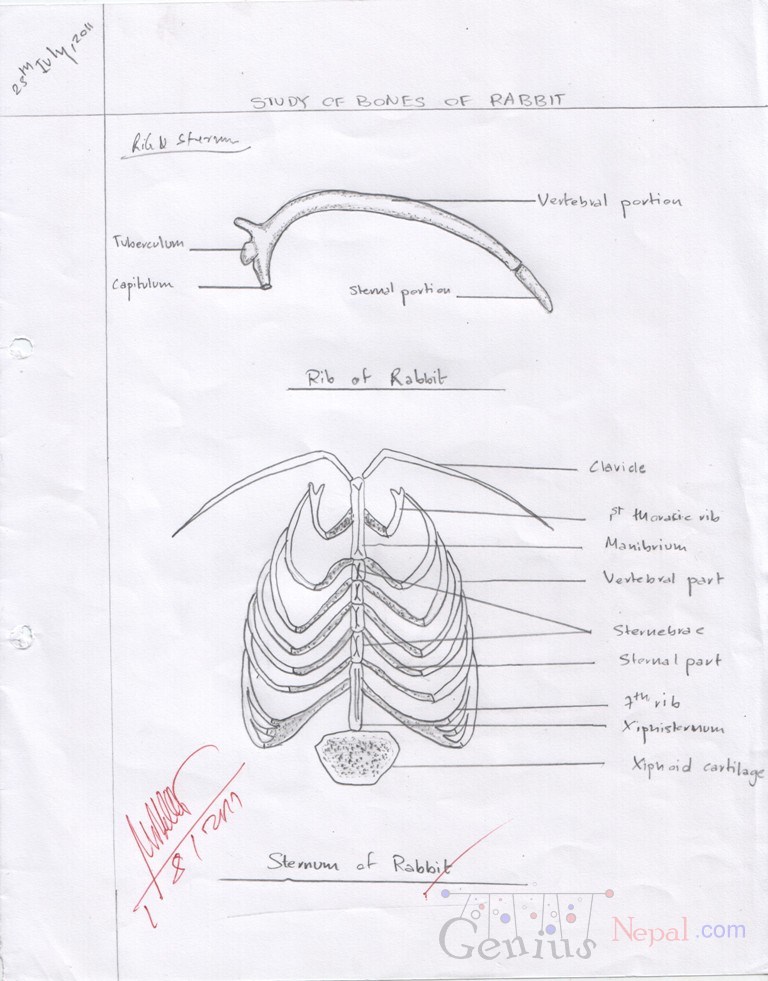 25th July, 2011
STUDY OF BONES OF RABBIT
Rib & Sternum
Vertebral portion
Tuberculum
Capitulum
Sternal portion
Rib of Rabbit
Clavicle
1st thoracic rib
Manibrium
Vertebral part
Sternebrae
Sternal part
7th rib
Xiphisternum
Xiphoid cartilage
Sternum of Rabbit
Genius Nepal.com